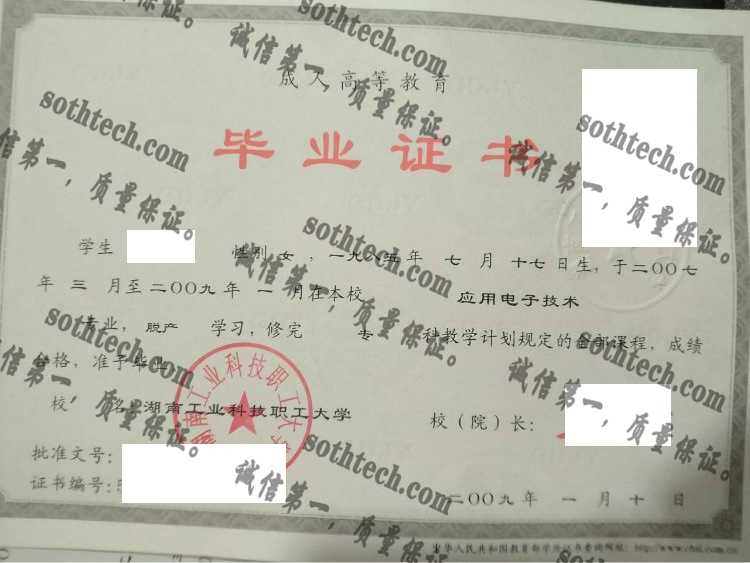 成人高等教育
毕业证书
学生 性别 女，一九八五年 七 月 十七日生，于二〇〇七
年 三 月至二〇〇九年 一 月在本校 应用电子技术
专业，脱产 学习，修完 专 科教学计划规定的全部课程，成绩
合格，准予毕业
校 名：湖南工业科技职工大学 校（院）长：
批准文号：
证书编号：
二〇〇九年 一 月 十 日
中华人民共和国教育部学历证书查询网址：http://www.chsi.com.cn
湖南工业科技职工大学
sothtech.com
诚信第一，质量保证。
sothtech.com
诚信第一，质量保证。
sothtech.com
诚信第一，质量保证。
sothtech.com
诚信第一，质量保证。
sothtech.com
诚信第一，质量保证。
sothtech.com
诚信第一，质量保证。
sothtech.com
诚信第一，质量保证。
sothtech.com